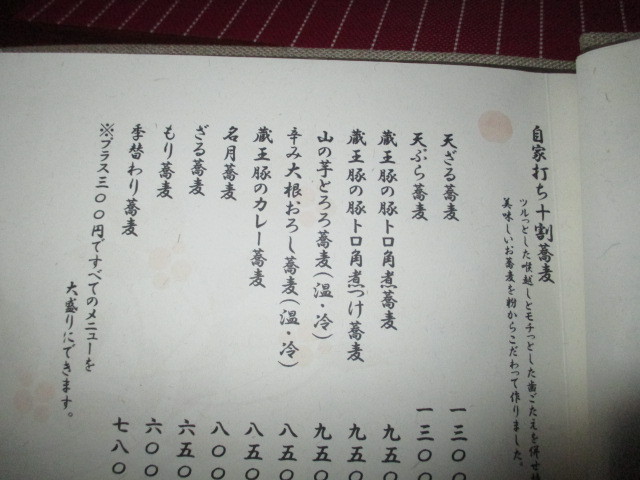 自家打ち十割蕎麦
ツルっとした喉越しとモチっとした歯ごたえを併せ
美味しいお蕎麦を粉からこだわって作りました。
天ざる蕎麦 一三〇〇
天ぷら蕎麦 一三〇〇
蔵王豚の豚トロ角煮蕎麦 九五〇
蔵王豚の豚トロ角煮つけ蕎麦 九五〇
山の芋とろろ蕎麦(温・冷) 九五〇
辛み大根おろし蕎麦(温・冷) 八五〇
蔵王豚のカレー蕎麦 八五〇
名月蕎麦 八〇〇
ざる蕎麦 六五〇
もり蕎麦 六〇〇
季替わり蕎麦 七八〇
※プラス三〇〇円ですべてのメニューを
大盛りにできます。